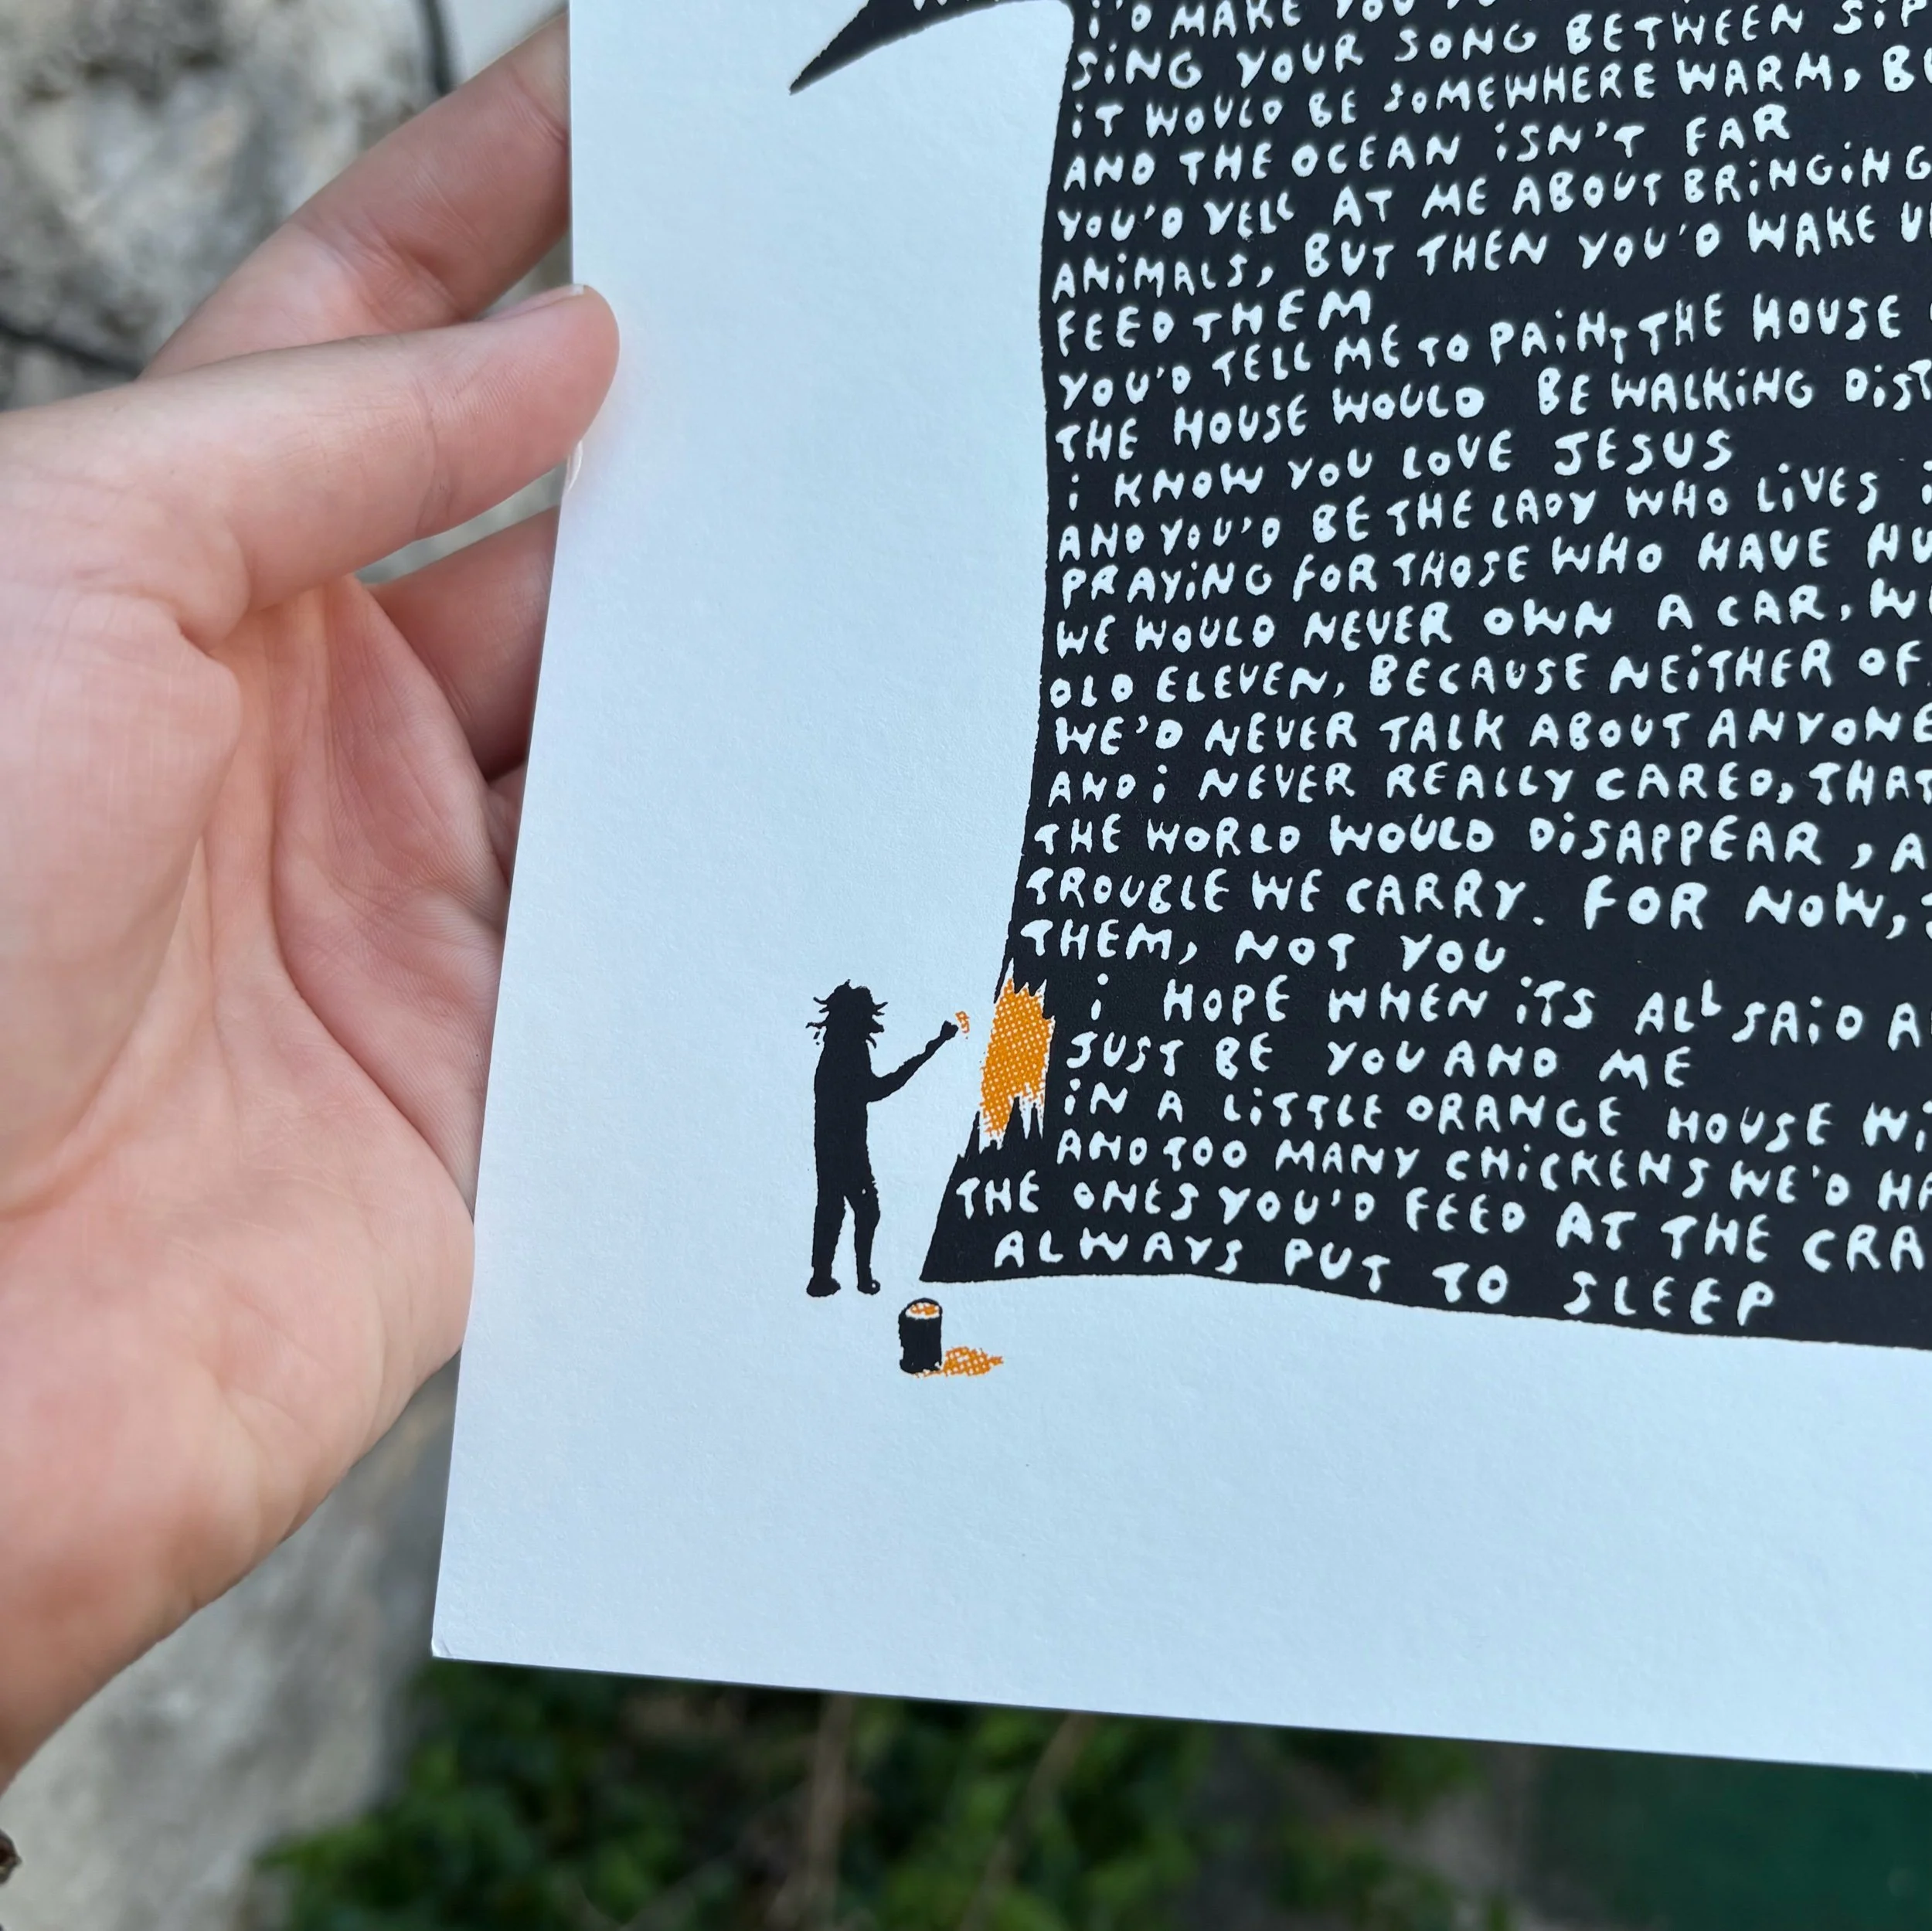 I'D MAKE YOU
SiNG YOUR SONG BETWEEN
iT WOULD BE SOMEWHERE WARM,
AND THE OCEAN iSN'T FAR
YOU'D YELL AT ME ABOUT BRiNGiNG
ANiMALS, BUT THEN YOU'D WAKE
FEED THEM
YOU'D TELL ME TO PAiNT THE HOUSE
THE HOUSE WOULD BE WALKiNG
i KNOW YOU LOVE JESUS
AND YOU'D BE THE LADY WHO LiVES
PRAYiNG FOR THOSE WHO HAVE
WE WOULD NEVER OWN A CAR,
OLD ELEVEN, BECAUSE NEiTHER OF
WE'D NEVER TALK ABOUT ANYONE
AND i NEVER REALLY CARED, THAT
THE WORLD WOULD DiSAPPEAR,
TROUBLE WE CARRY. FOR NOW,
THEM, NOT YOU
i HOPE WHEN iTS ALL SAiD
JUST BE YOU AND ME
iN A LiTTLE ORANGE HOUSE
AND TOO MANY CHiCKENS WE'D
THE ONES YOU'D FEED AT THE
ALWAYS PUT TO SLEEP